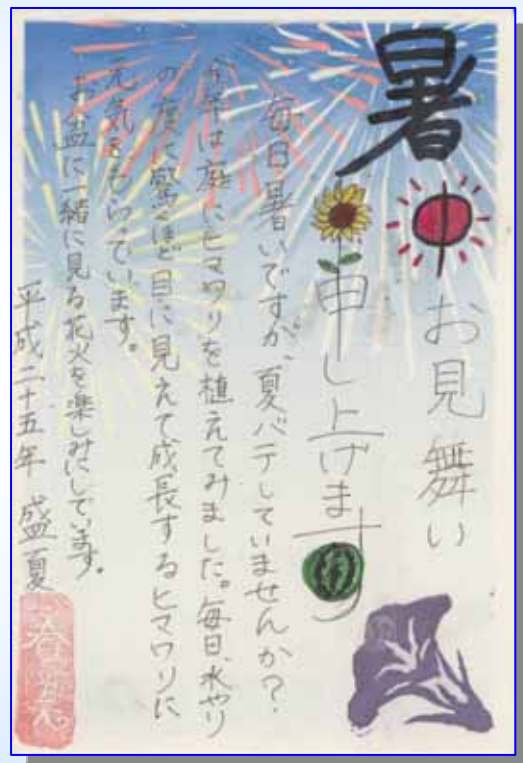 暑中お見舞い
申し上げます
毎日暑いですが、夏バテしていませんか？
今年は庭にヒマワリを植えてみました。毎日、水やり
の度に驚くほど目に見えて成長するヒマワリに
元気をもらっています。
お盆に一緒に見る花火を楽しみにしています。
平成二十五年 盛夏